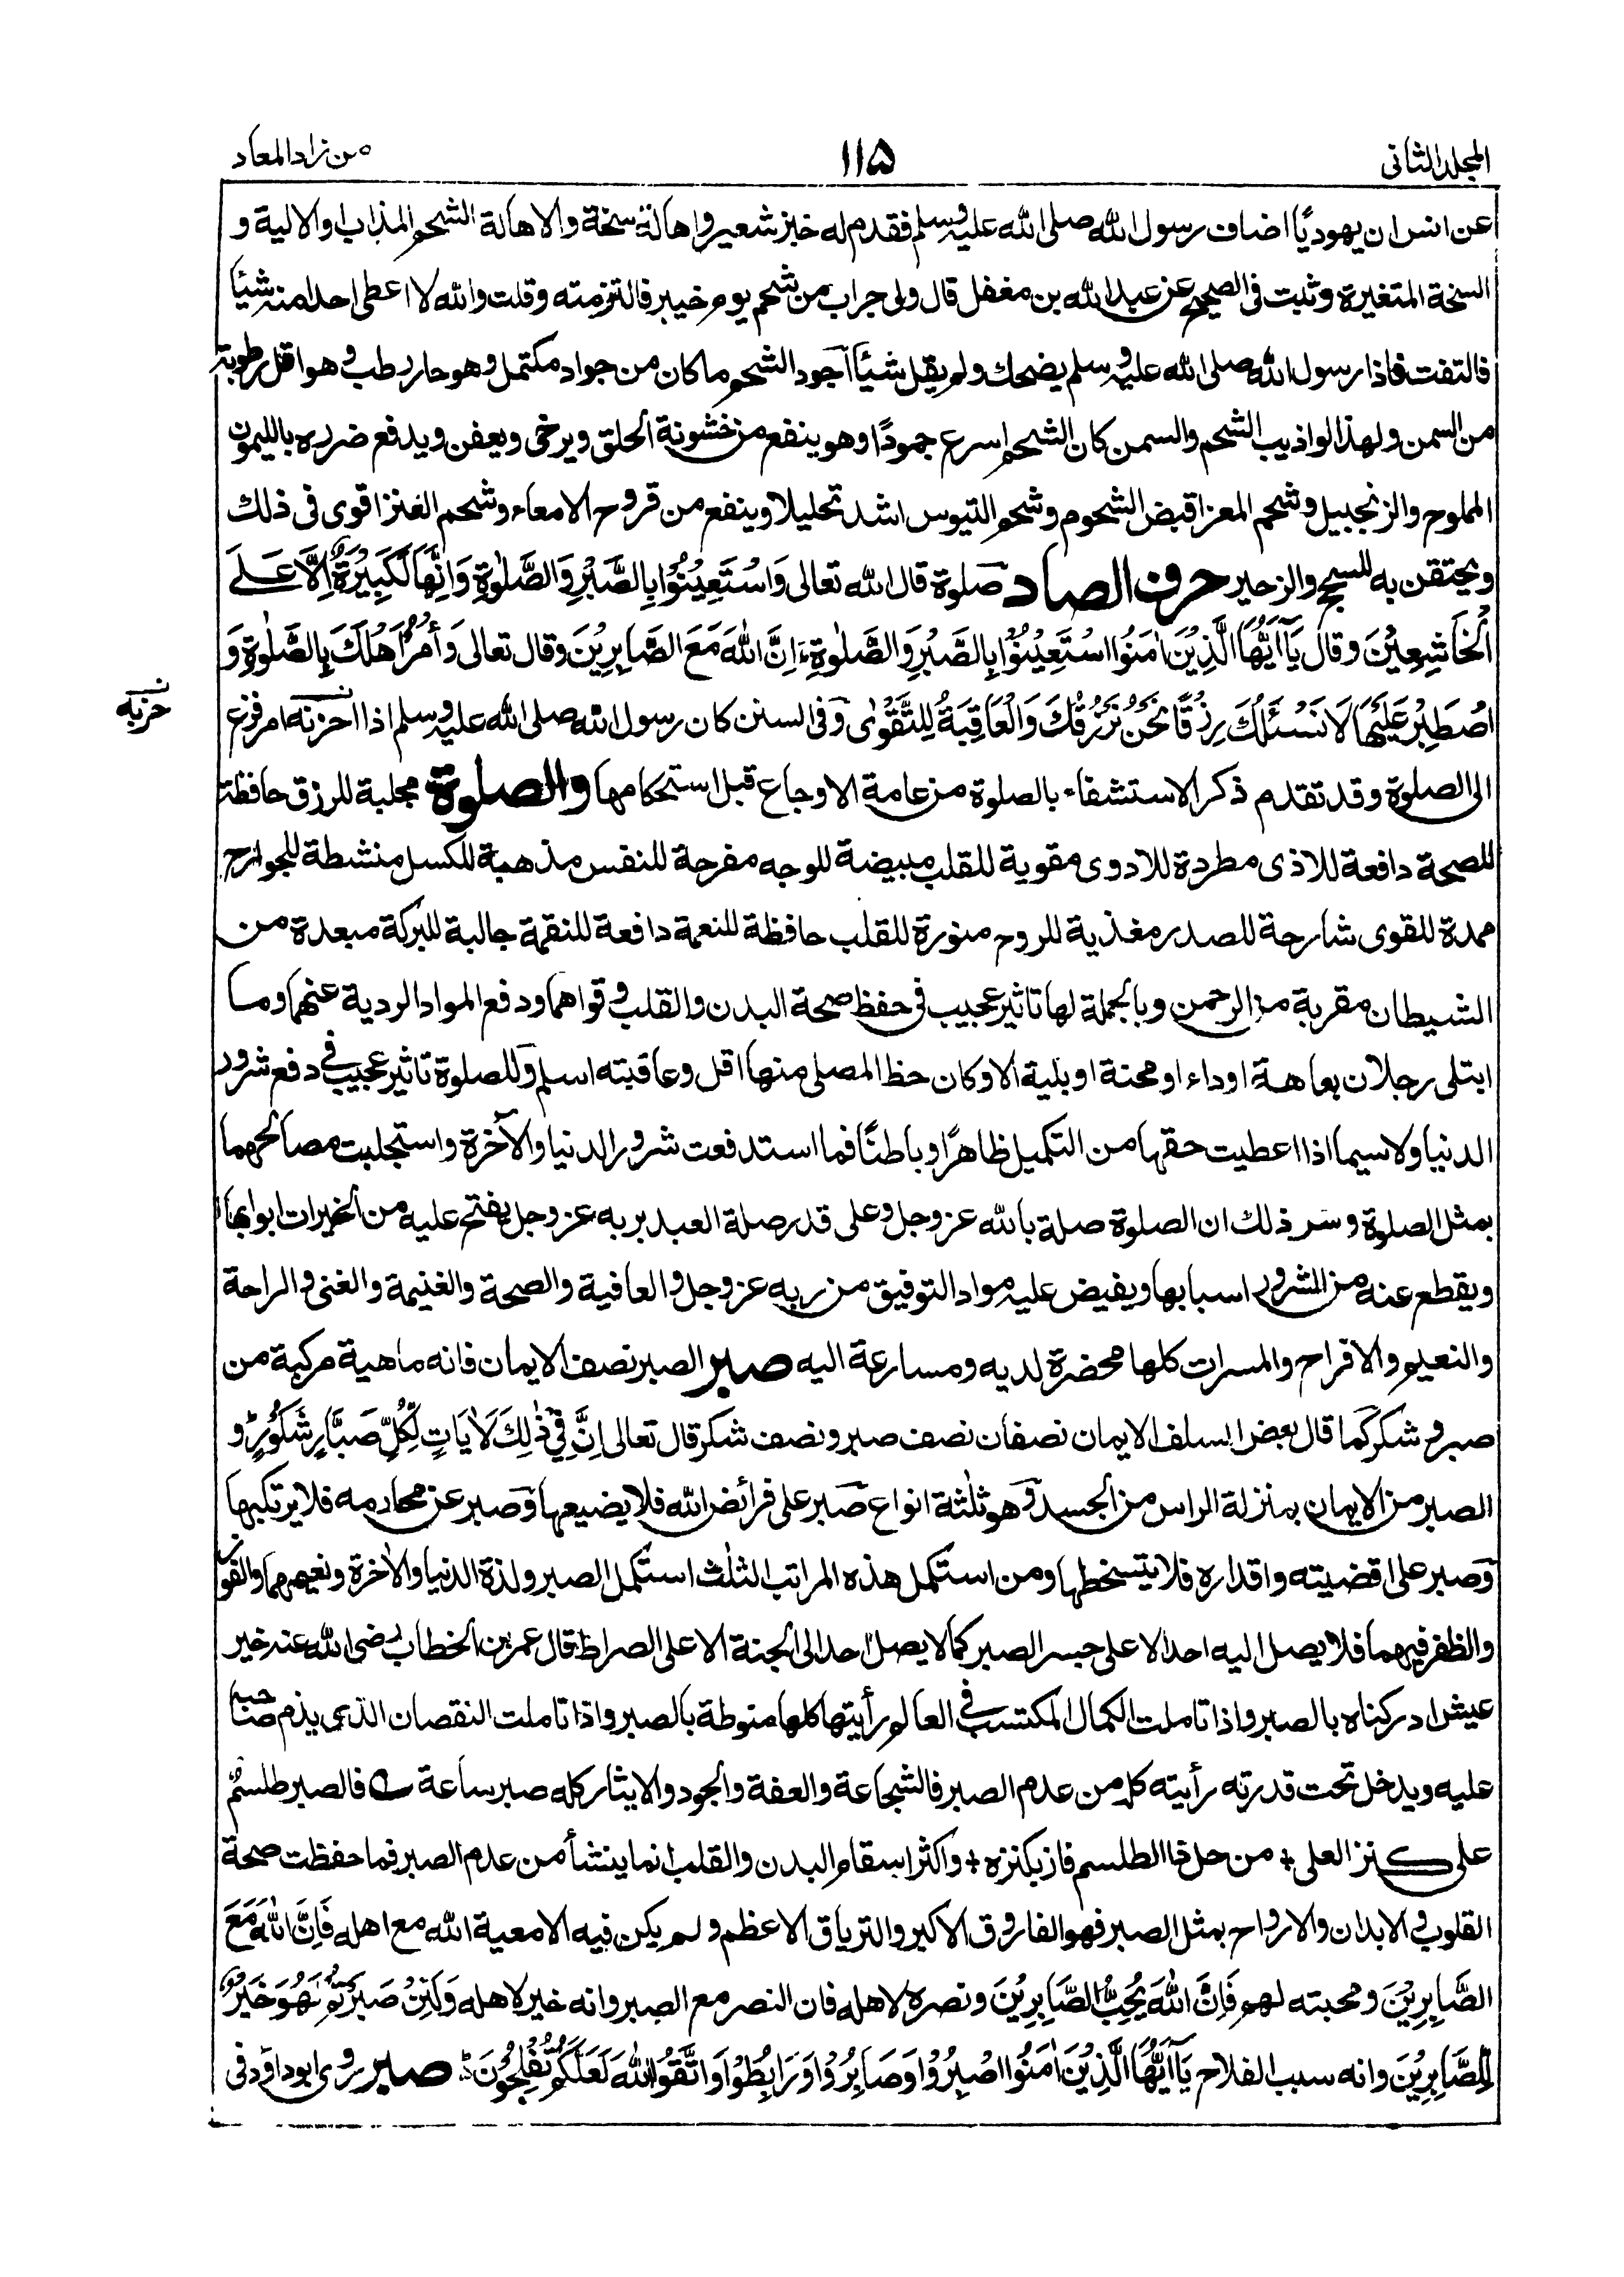 المجلد الثانى
١١٥
من زاد المعاد
عن انس ان يهوديًا اضاف رسول الله صلى الله عليه وسلم فقدم له خبز شعير واهالة سنخة والاهالة الشحم المذاب والالية و
السنخة المتغيرة وثبت فى الصحيح عن عبد الله بن مغفل قال ولى جراب من شحم يوم خيبر فالتزمته وقلت والله لا اعطى احدا منه شيئًا
فالتفت فاذا رسول الله صلى الله عليه وسلم يضحك ولم يقل شيئًا اجود الشحم ما كان من جواد مكتمل وهو حار رطب وهو اقل رطوبة
من السمن ولهذا لو اذيب الشحم والسمن كان الشحم اسرع جمودًا وهو ينفع من خشونة الحلق ويرخى ويعفن ويدفع ضرره بالليمون
المملوح والزنجبيل وشحم المعز اقبض الشحوم وشحم التيوس اشد تحليلا وينفع من قروح الامعاء وشحم العنز اقوى فى ذلك
ويحتقن به للسحج والزحير حرف الصاد صلوة قال الله تعالى وَاسْتَعِيْنُوْا بِالصَّبْرِ وَالصَّلٰوةِ وَاِنَّهَا لَكَبِيْرَةٌ اِلَّا عَلَے
الْخَاشِعِيْنَ وقال يَآ اَيُّهَا الَّذِيْنَ اٰمَنُوا اسْتَعِيْنُوْا بِالصَّبْرِ وَالصَّلٰوةِ اِنَّ اللهَ مَعَ الصَّابِرِيْنَ وقال تعالى وَأْمُرْ اَهْلَكَ بِالصَّلٰوةِ وَ
اصْطَبِرْ عَلَيْهَا لَا نَسْئَلُكَ رِزْقًا نَحْنُ نَرْزُقُكَ وَالْعَاقِبَةُ لِلتَّقْوٰى وفى السنن كان رسول الله صلى الله عليه وسلم اذا احزنه امر فزع
حزبه
الى الصلوة وقد تقدم ذكر الاستشفاء بالصلوة من عامة الاوجاع قبل استحكامها والصلوة مجلبة للرزق حافظة
للصحة دافعة للاذى مطردة للادوى مقوية للقلب مبيضة للوجه مفرحة للنفس مذهبة للكسل منشطة للجوارح
ممدة للقوى شارحة للصدر مغذية للروح منورة للقلب حافظة للنعمة دافعة للنقمة جالبة للبركة مبعدة من
الشيطان مقربة من الرحمن وبالجملة لها تاثير عجيب فى حفظ صحة البدن والقلب وقواهما ودفع المواد الردية عنهما وما
ابتلى رجلان بعاهة او داء او محنة او بلية الا وكان حظ المصلى منها اقل وعاقبته اسلم وللصلوة تاثير عجيب فى دفع شرور
الدنيا ولا سيما اذا اعطيت حقها من التكميل ظاهرًا وباطنًا فما استدفعت شرور الدنيا والآخرة واستجلبت مصالحهما
بمثل الصلوة وسر ذلك ان الصلوة صلة بالله عز وجل وعلى قدر صلة العبد بربه عز وجل يفتح عليه من الخيرات ابوابها
ويقطع عنه من الشرور اسبابها ويفيض عليه مواد التوفيق من ربه عز وجل والعافية والصحة والغنيمة والغنى والراحة
والنعيم والافراح والمسرات كلها محضرة لديه ومسارعة اليه صبر الصبر نصف الايمان فانه ماهية مركبة من
صبر و شكر كما قال بعض السلف الايمان نصفان نصف صبر ونصف شكر قال تعالى اِنَّ فِيْ ذٰلِكَ لَاٰيَاتٍ لِّكُلِّ صَبَّارٍ شَكُوْرٍ و
الصبر من الايمان بمنزلة الراس من الجسد وهو ثلثة انواع صبر على فرائض الله فلا يضيعها وصبر عن محارمه فلا يرتكبها
وصبر على اقضيته واقداره فلا يتسخطها ومن استكمل هذه المراتب الثلث استكمل الصبر ولذة الدنيا والاٰخرة ونعيمهما والفوز
والظفر فيهما فلا يصل اليه احد الا على جسر الصبر كما لا يصل احد الى الجنة الا على الصراط قال عمر بن الخطاب رضى الله عنه خير
عيش ادركناه بالصبر واذا تاملت الكمال المكتسب فى العالم رأيتها كلها منوطة بالصبر واذا تاملت النقصان الذى يذم صاحبه
عليه ويدخل تحت قدرته رأيته كله من عدم الصبر فالشجاعة والعفة والجود والايثار كله صبر ساعة فالصبر طلسم
على كنز العلى + من حل ذا الطلسم فاز بكنزه + واكثر اسقام البدن والقلب انما ينشأ من عدم الصبر فما حفظت صحة
القلوب والابدان والارواح بمثل الصبر فهو الفاروق الاكبر والترياق الاعظم ولم يكن فيه الا معية الله مع اهله فَاِنَّ اللهَ مَعَ
الصَّابِرِيْنَ ومحبته لهم فَاِنَّ اللهَ يُحِبُّ الصَّابِرِيْنَ ونصره لاهله فان النصر مع الصبر وانه خير لاهله وَلَئِنْ صَبَرْتُمْ لَهُوَ خَيْرٌ
لِّلصَّابِرِيْنَ وانه سبب الفلاح يَآ اَيُّهَا الَّذِيْنَ اٰمَنُوا اصْبِرُوْا وَصَابِرُوْا وَرَابِطُوْا وَاتَّقُوا اللهَ لَعَلَّكُمْ تُفْلِحُوْنَ صبر روى ابوداود فى